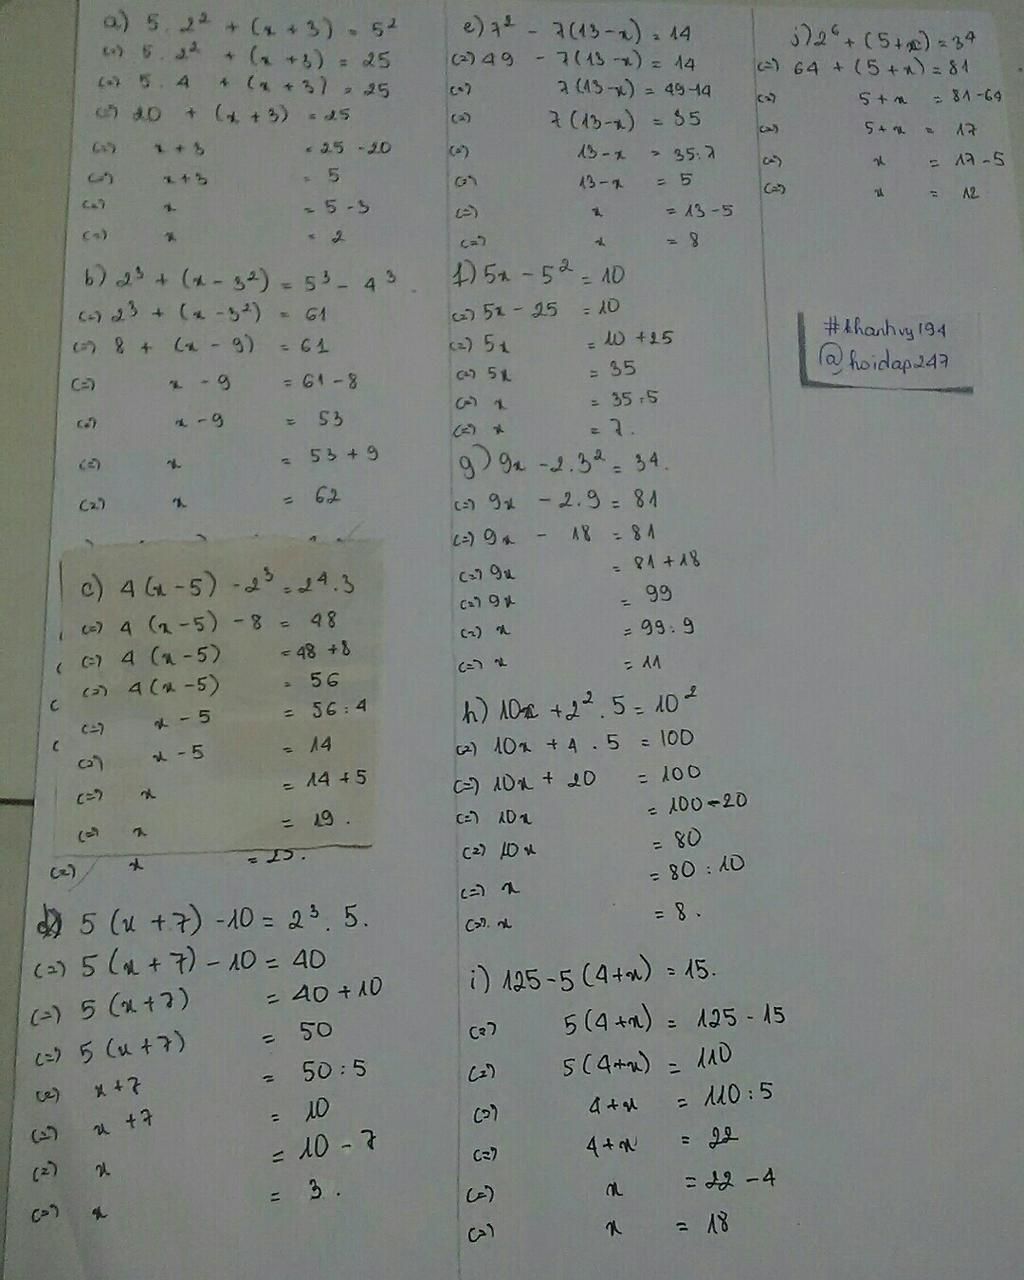 a) 5.2² + (x + 3) = 5²
(=) 5.2² + (x + 3) = 25
(=) 5.4 + (x + 3) = 25
(=) 20 + (x + 3) = 25
(=) x + 3 = 25 - 20
(=) x + 3 = 5
(=) x = 5 - 3
(=) x = 2
b) 2³ + (x - 3²) = 5³ - 4³
(=) 2³ + (x - 3²) = 61
(=) 8 + (x - 9) = 61
(=) x - 9 = 61 - 8
(=) x - 9 = 53
(=) x = 53 + 9
(=) x = 62
c) 4(x - 5) - 2³ = 2⁴.3
(=) 4(x - 5) - 8 = 48
(=) 4(x - 5) = 48 + 8
(=) 4(x - 5) = 56
(=) x - 5 = 56 : 4
(=) x - 5 = 14
(=) x = 14 + 5
(=) x = 19.
(=) x
d) 5(x + 7) - 10 = 2³.5.
(=) 5(x + 7) - 10 = 40
(=) 5(x + 7) = 40 + 10
(=) 5(x + 7) = 50
(=) x + 7 = 50 : 5
(=) x + 7 = 10
(=) x = 10 - 7
(=) x = 3.
e) 7² - 7(13 - x) = 14
(=) 49 - 7(13 - x) = 14
(=) 7(13 - x) = 49 - 14
(=) 7(13 - x) = 35
(=) 13 - x = 35 : 7
(=) 13 - x = 5
(=) x = 13 - 5
(=) x = 8
f) 5x - 5² = 10
(=) 5x - 25 = 10
(=) 5x = 10 + 25
(=) 5x = 35
(=) x = 35 : 5
(=) x = 7.
g) 9x - 2.3² = 34.
(=) 9x - 2.9 = 81
(=) 9x - 18 = 81
(=) 9x = 81 + 18
(=) 9x = 99
(=) x = 99 : 9
(=) x = 11
h) 10x + 2².5 = 10²
(=) 10x + 4.5 = 100
(=) 10x + 20 = 100
(=) 10x = 100 - 20
(=) 10x = 80
(=) x = 80 : 10
(=) x = 8.
i) 125 - 5(4 + x) = 15.
(=) 5(4 + x) = 125 - 15
(=) 5(4 + x) = 110
(=) 4 + x = 110 : 5
(=) 4 + x = 22
(=) x = 22 - 4
(=) x = 18
j) 2⁶ + (5 + x) = 3⁴
(=) 64 + (5 + x) = 81
(=) 5 + x = 81 - 64
(=) 5 + x = 17
(=) x = 17 - 5
(=) x = 12
#khanhvy194
@hoidap247